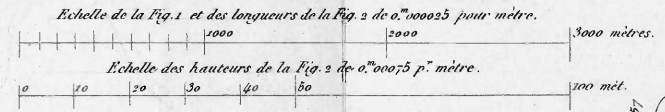 Echelle de la Fig. 1 et des longueurs de la Fig. 2 de 0.m000025 pour mètre.
1000 2000 3000 mètres.
Echelle des hauteurs de la Fig. 2 de 0.m00075 pr. mètre.
0 10 20 30 40 50 100 mèt.
57